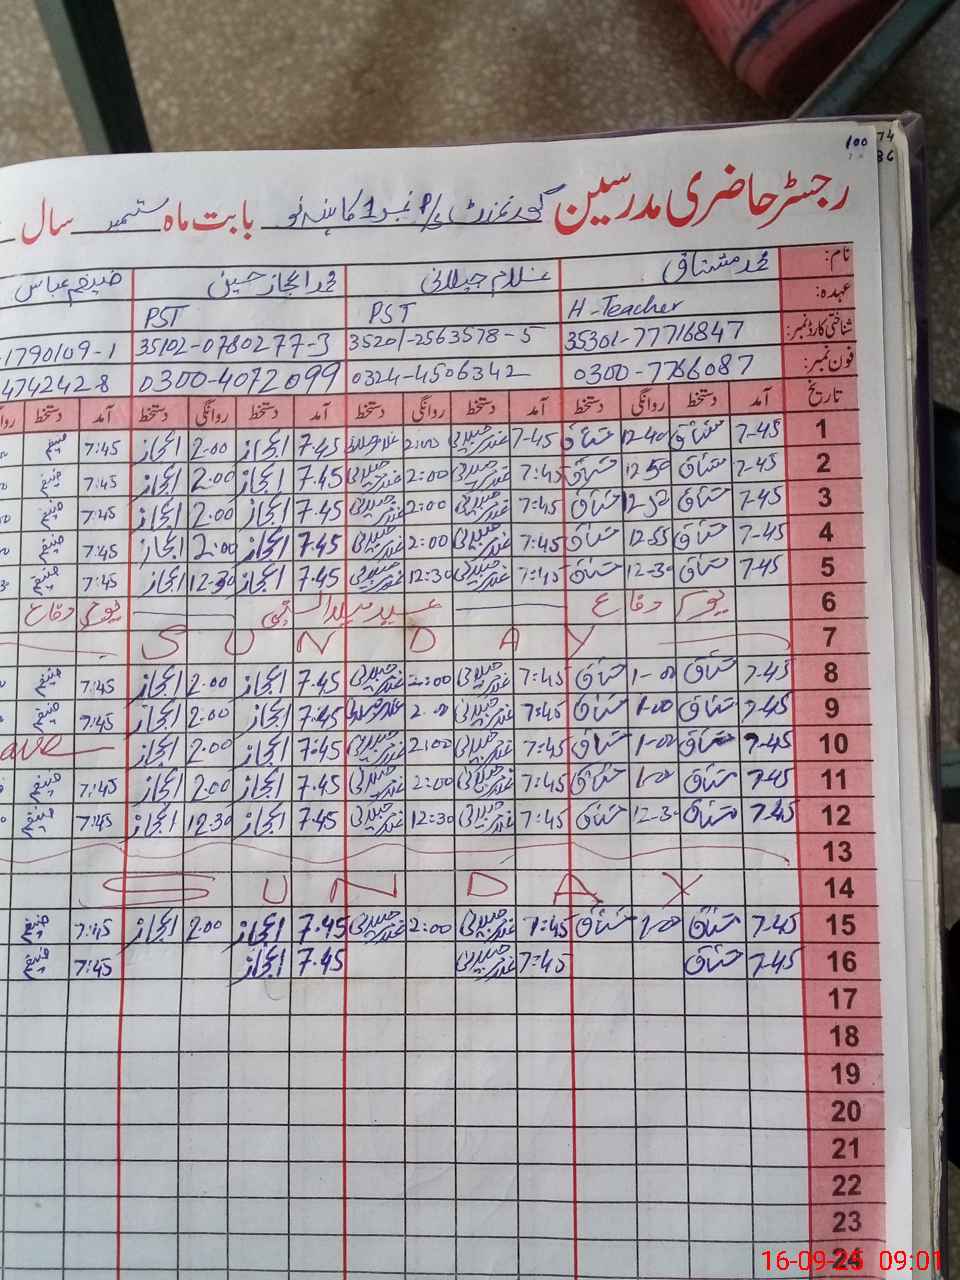 100 74
36
رجسٹر حاضری مدرسین گورنمنٹ P/S نمبر 1 کاہنہ نو بابت ماہ ستمبر سال
نام: محمد مشتاق غلام جیلانی محمد اعجاز حسین ضیغم عباس
عہدہ: H-Teacher PST PST
شناختی کارڈ نمبر: 35301-77716847 35201-2563578-5 35102-0780277-3 1790109-1
فون نمبر: 0300-7766087 0324-4506342 0300-4072099 4742428
تاریخ آمد دستخط روانگی دستخط آمد دستخط روانگی دستخط آمد دستخط روانگی دستخط آمد دستخط
1 7-45 مشتاق 12-40 مشتاق 7-45 غلام جیلانی 2:00 غلام جیلانی 7.45 اعجاز 2.00 اعجاز 7:45 ضیغم
2 7-45 مشتاق 12-50 مشتاق 7:45 غلام جیلانی 2:00 غلام جیلانی 7.45 اعجاز 2.00 اعجاز 7:45 ضیغم
3 7-45 مشتاق 12-50 مشتاق 7:45 غلام جیلانی 2:00 غلام جیلانی 7.45 اعجاز 2.00 اعجاز 7:45 ضیغم
4 7-45 مشتاق 12-55 مشتاق 7:45 غلام جیلانی 2:00 غلام جیلانی 7.45 اعجاز 2:00 اعجاز 7:45 ضیغم
5 7-45 مشتاق 12-30 مشتاق 7:45 غلام جیلانی 12:30 غلام جیلانی 7.45 اعجاز 12.30 اعجاز 7:45 ضیغم
6 یوم دفاع عید میلاد النبی یوم دفاع
7 SUNDAY
8 7-45 مشتاق 1-00 مشتاق 7:45 غلام جیلانی 2:00 غلام جیلانی 7.45 اعجاز 2.00 اعجاز 7:45 ضیغم
9 7-45 مشتاق 1-00 مشتاق 7:45 غلام جیلانی 2:00 غلام جیلانی 7.45 اعجاز 2.00 اعجاز 7:45 ضیغم
10 7-45 مشتاق 1-00 مشتاق 7:45 غلام جیلانی 2:00 غلام جیلانی 7:45 اعجاز 2.00 اعجاز ave
11 7-45 مشتاق 1-00 مشتاق 7:45 غلام جیلانی 2:00 غلام جیلانی 7.45 اعجاز 2.00 اعجاز 7:45 ضیغم
12 7-45 مشتاق 12-30 مشتاق 7:45 غلام جیلانی 12:30 غلام جیلانی 7.45 اعجاز 12.30 اعجاز 7:45 ضیغم
13
14 SUNDAY
15 7-45 مشتاق 1-00 مشتاق 7:45 غلام جیلانی 2:00 غلام جیلانی 7.45 اعجاز 2.00 اعجاز 7:45 ضیغم
16 7-45 مشتاق 7:45 غلام جیلانی 7.45 اعجاز 7:45 ضیغم
17
18
19
20
21
22
23
24
16-09-25 09:01